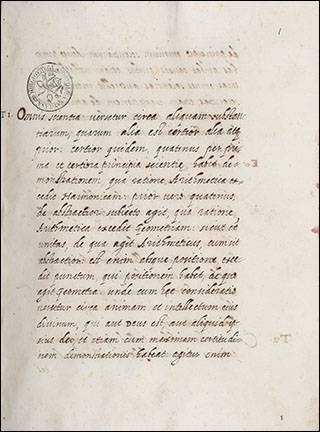 1
T 1.
Omnis scientia versatur circa aliquam substan
tiarum, quarum alia est certior alia atq
prior: certior quidem, quatenus per pri
ma et certiora principia scientię, habet de
monstrationem qua ratione, Arithmetica ex
cedit Harmonicam: prior vero quatenus,
de abstractiori subiecto agit, qua ratione,
Arithmetica excedit Geometriam: sicut et
unitas, de qua agit Arithmeticus, cum sit
abstractior est enim absque positione, exce
dit punctum, qui positionem habet, de quo
agit Geometria: unde cum hęc consideratio
versetur circa animam et intellectum eius
divinum, qui aut Deus est, aut aliquid ip
sius dei, et etiam cum maximam certitudi
nem demonstrationis habeat: agitur enim
1